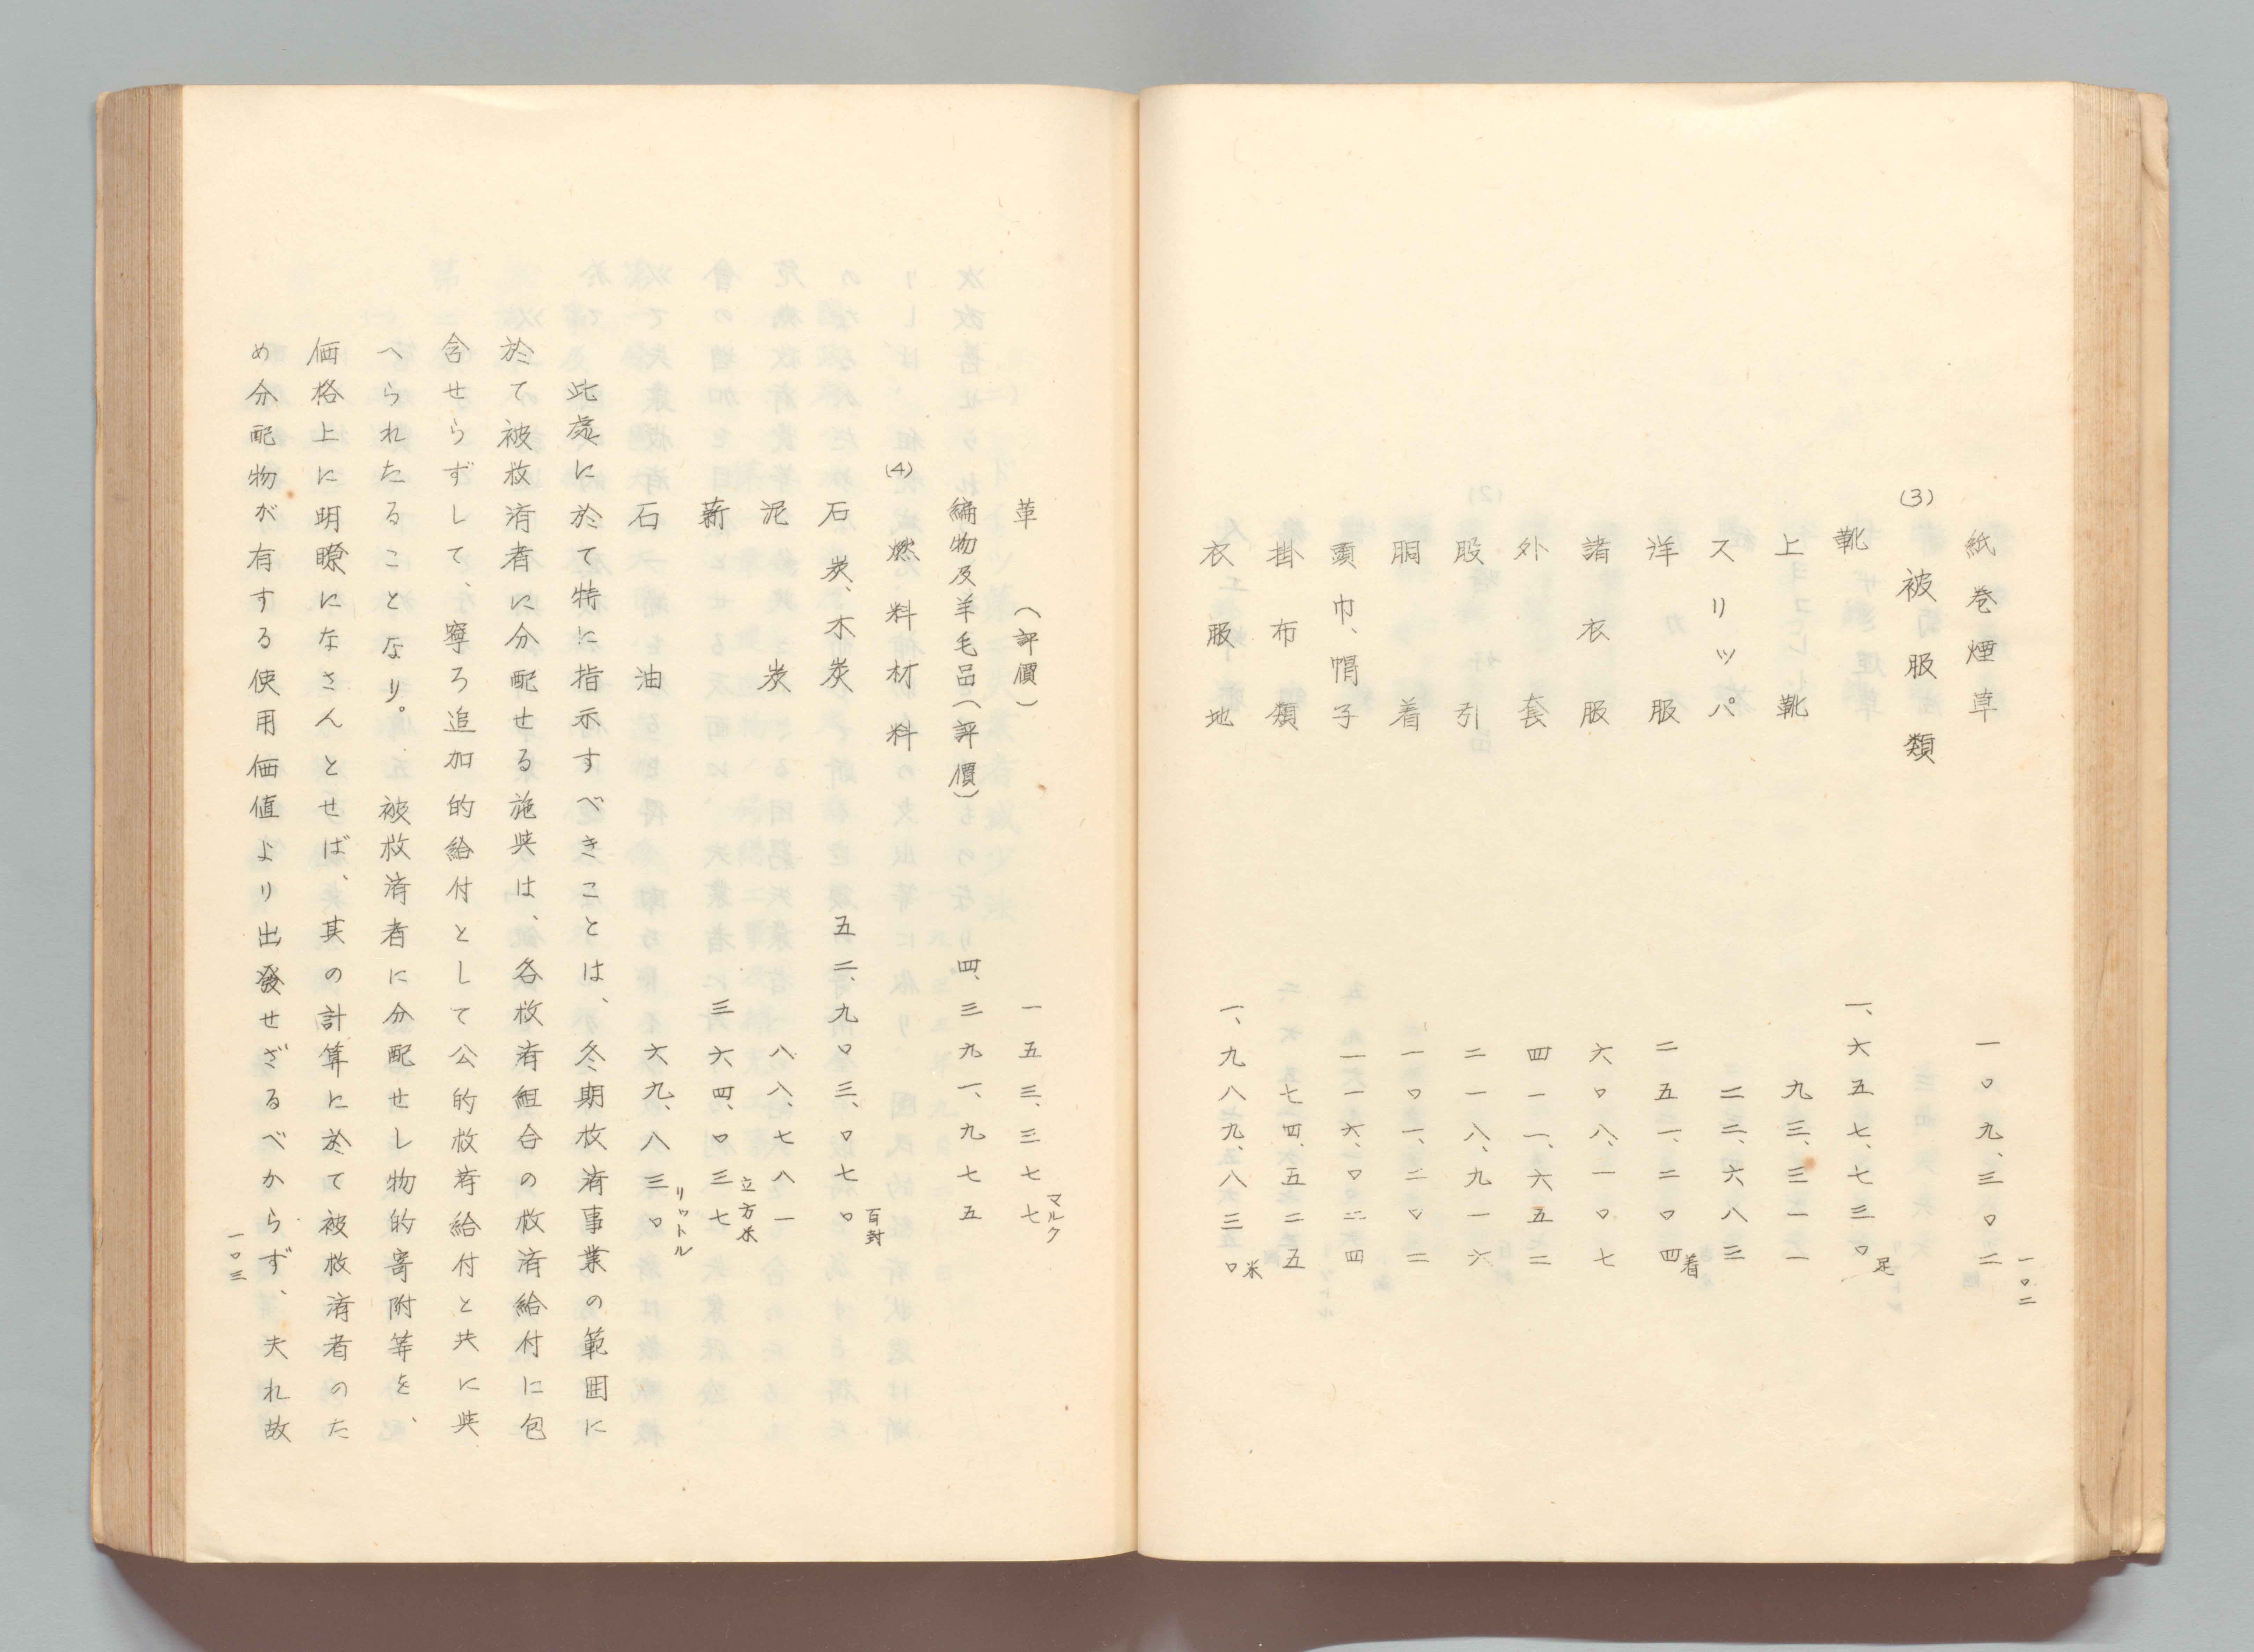 一〇二
紙巻煙草　一〇九、三〇二
(3) 被服類
靴　一、六五七、七三〇足
上靴　九三、三一一
スリッパ　二二、六八三
洋服　二五一、二〇四着
諸衣服　六〇八、一〇七
外套　四一一、六五二
股引　二一八、九一六
胴着　一〇一、二〇二
頭巾、帽子　一一六、〇二四
掛布類　七四、五二五
衣服地　一、九八七九、八三〇米
革（評價）　一五三、三七七マルク
編物及羊毛品（評價）　四、三九一、九七五
(4) 燃料材料
石炭、木炭　五二、九〇三、〇七〇百封
泥炭　八八、七八一
薪　三六四、〇三七立方米
石油　六九、八三〇リットル
此處に於て特に指示すべきことは、冬期救済事業の範囲に
於て被救済者に分配せる施與は、各救済組合の救済給付に包
含せらずして、寧ろ追加的給付として公的救済給付と共に與
へられたることなり。　被救済者に分配せし物的寄附等を、
価格上に明瞭になさんとせば、其の計算に於て被救済者のた
め分配物が有する使用価値より出発せざるべからず、夫れ故
一〇三